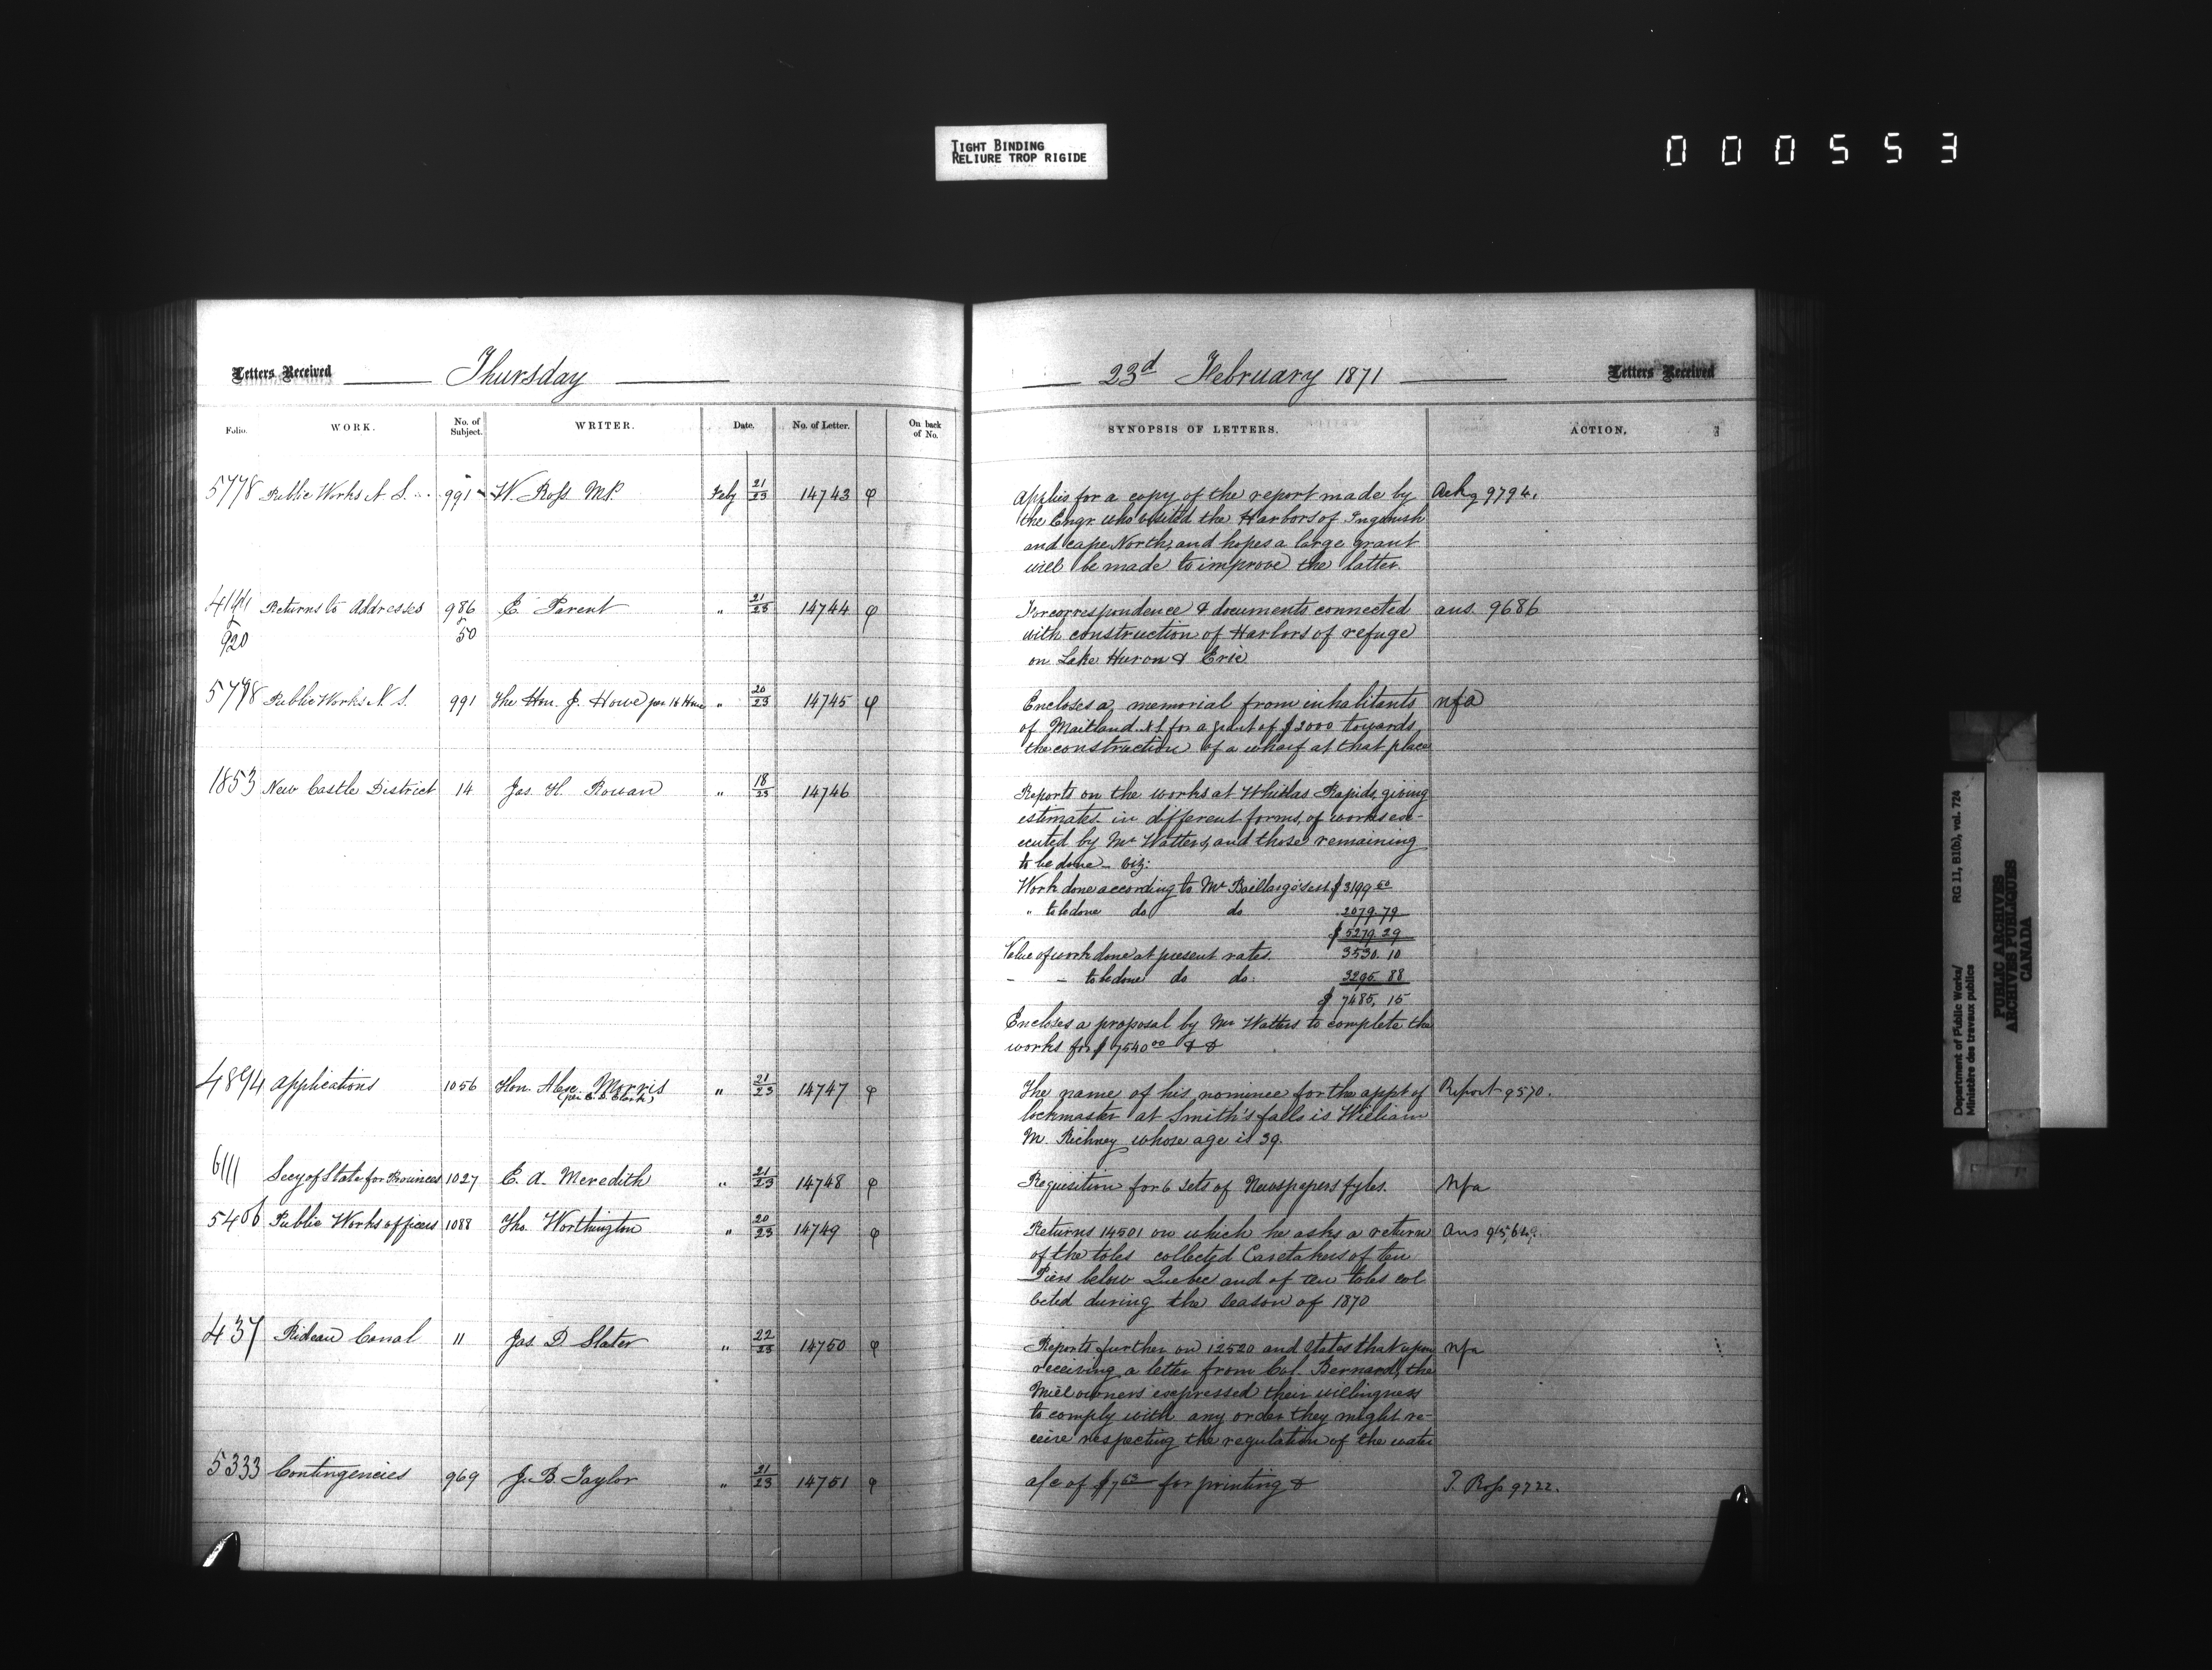 TIGHT BINDING
RELIURE TROP RIGIDE
000553
Letters Received Thursday
Folio. WORK. No. of Subject. WRITER. Date. No. of Letter. On back of No.
5778 Public Works N. S. 991 W. Ross M.P. Feby 21/23 14743 φ
Returns to Addresses 986 & 50 E. Parent " 21/23 14744 φ
920
Public Works N. S. 991 The Hon. J. Howe per " 20/23 14745 φ
1853 New Castle District 14 Jas. H. Rowan " 18/23 14746
4894 Applications 1056 Hon. Alex. Morris " 21/23 14747 φ
6111 Secy of State for Provinces 1027 E. A. Meredith " 21/23 14748 φ
5406 Public Works officers 1088 Tho. Worthington " 20/23 14749 φ
437 Rideau Canal 11 Jas. D. Slater " 22/23 14750 φ
5333 Contingencies 969 J. B. Taylor " 21/23 14751 φ
23d February 1871 Letters Received
SYNOPSIS OF LETTERS. ACTION.
Applies for a copy of the report made by Ackg 9794.
the Engr. who visited the Harbors of Inganish
and Cape North, and hopes a large grant
will be made to improve the latter.
For correspondence & documents connected ans. 9686
with construction of Harbors of refuge
on Lake Huron & Erie
Encloses a memorial from inhabitants nfa
of Maitland N S for a grant of $2000 towards
the construction of a wharf at that place
Reports on the works at Rapids, giving
estimates in different forms, of works exe-
cuted by Mr Watters, and those remaining
to be done - viz:
Work done according to Mr Baillairgé's est. $3199.50
" to be done do do 2079.79
$5279.29
Value of work done at present rates. 3530.10
- - to be done do do. 88
$7485.15
Encloses a proposal by Mr Watters to complete the
works for $7540.00 & &
The name of his nominee for the appt of Report 9570.
lockmaster at Smith's falls is William
M. Richney whose age is 39.
Requisition for 6 sets of Newspapers fyles. Nfa
Returns 14501 on which he asks a return Ans
of the toles collected Caretakers of ten
Piers below Quebec and of ten toles col
lected during the Season of 1870
Reports further on 12520 and states that upon nfa
receiving a letter from Col. Bernard, the
Mill owners expressed their willingness
to comply with any order they might re-
ceive respecting the regulation of the water
a/c of $7.63 for printing & T. Ross 9722.
Department of Public Works/ RG 11, B1(b), vol. 724
Ministère des travaux publics
PUBLIC ARCHIVES
ARCHIVES PUBLIQUES
CANADA